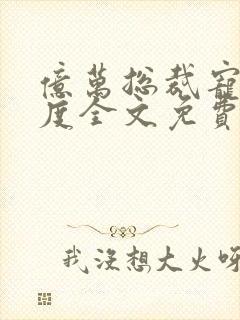 億萬總裁寵
度全文免費
我沒想大火呀